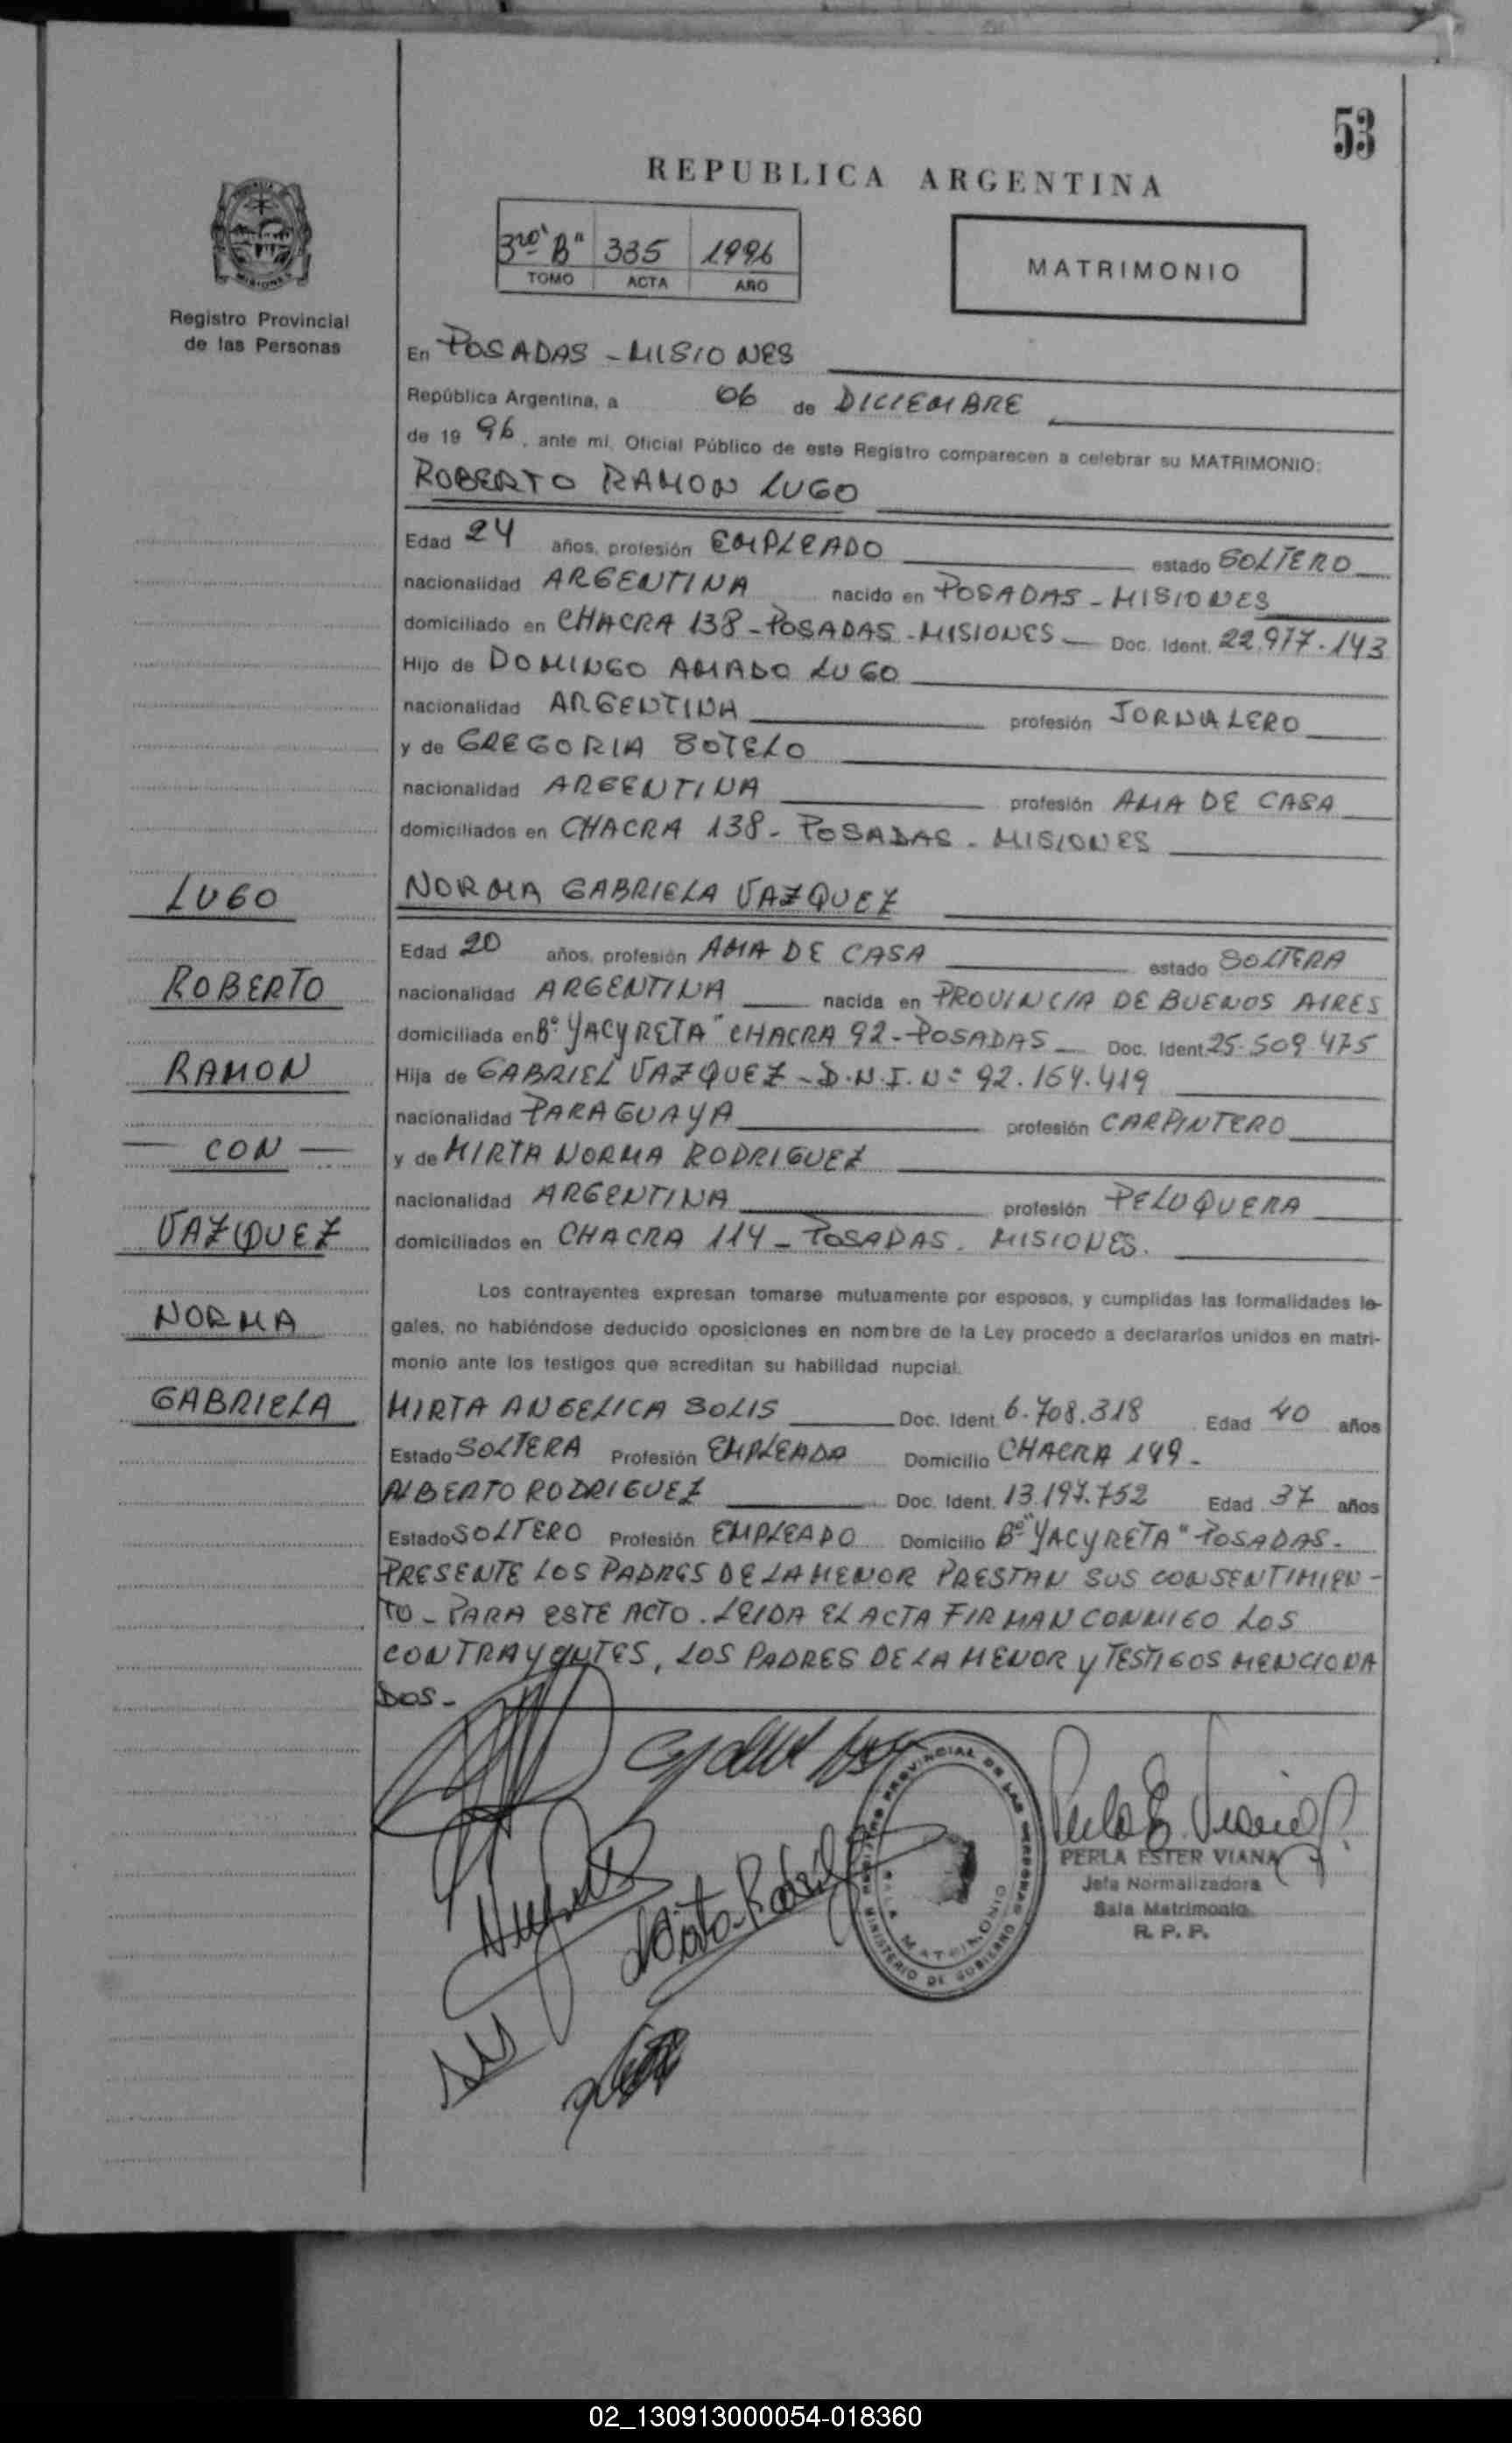 53
REPUBLICA ARGENTINA
3ro "B" 335 1996
TOMO ACTA AÑO
MATRIMONIO
Registro Provincial
de las Personas
En POSADAS - MISIONES
República Argentina, a 06 de DICIEMBRE
de 19 96, ante mi, Oficial Público de este Registro comparecen a celebrar su MATRIMONIO:
ROBERTO RAMON LUGO
Edad 24 años, profesión EMPLEADO estado SOLTERO
nacionalidad ARGENTINA nacido en POSADAS - MISIONES
domiciliado en CHACRA 138 - POSADAS - MISIONES - Doc. Ident. 22.917.143
Hijo de DOMINGO AMADO LUGO
nacionalidad ARGENTINA profesión JORNALERO
y de GREGORIA SOTELO
nacionalidad ARGENTINA profesión AMA DE CASA
domiciliados en CHACRA 138 - POSADAS - MISIONES
NORMA GABRIELA VAZQUEZ
Edad 20 años, profesión AMA DE CASA estado SOLTERA
nacionalidad ARGENTINA nacida en PROVINCIA DE BUENOS AIRES
domiciliada en Bº "YACYRETA" CHACRA 92 - POSADAS - Doc. Ident 25.509.475
Hija de GABRIEL VAZQUEZ - D.N.I. Nº 92.154.419
nacionalidad PARAGUAYA profesión CARPINTERO
y de MIRTA NORMA RODRIGUEZ
nacionalidad ARGENTINA profesión PELUQUERA
domiciliados en CHACRA 114 - POSADAS. MISIONES.
Los contrayentes expresan tomarse mutuamente por esposos, y cumplidas las formalidades le-
gales, no habiéndose deducido oposiciones en nombre de la Ley procedo a declararlos unidos en matri-
monio ante los testigos que acreditan su habilidad nupcial.
MIRTA ANGELICA SOLIS Doc. Ident. 6.708.318 Edad 40 años
Estado SOLTERA Profesión EMPLEADA Domicilio CHACRA 149 -
ALBERTO RODRIGUEZ Doc. Ident. 13.197.752 Edad 37 años
Estado SOLTERO Profesión EMPLEADO Domicilio Bº "YACYRETA" POSADAS -
PRESENTE LOS PADRES DE LA MENOR PRESTAN SUS CONSENTIMIEN-
TO - PARA ESTE ACTO. LEIDA EL ACTA FIRMAN CONMIGO LOS
CONTRAYENTES, LOS PADRES DE LA MENOR Y TESTIGOS MENCIONA
DOS -
LUGO
ROBERTO
RAMON
- CON -
VAZQUEZ
NORMA
GABRIELA
PROVINCIAL DE LAS PERSONAS
SALA MATRIMONIO
MINISTERIO DE GOBIERNO
PERLA ESTER VIANA
Jefa Normalizadora
Sala Matrimonio
R. P. P.
02_130913000054-018360